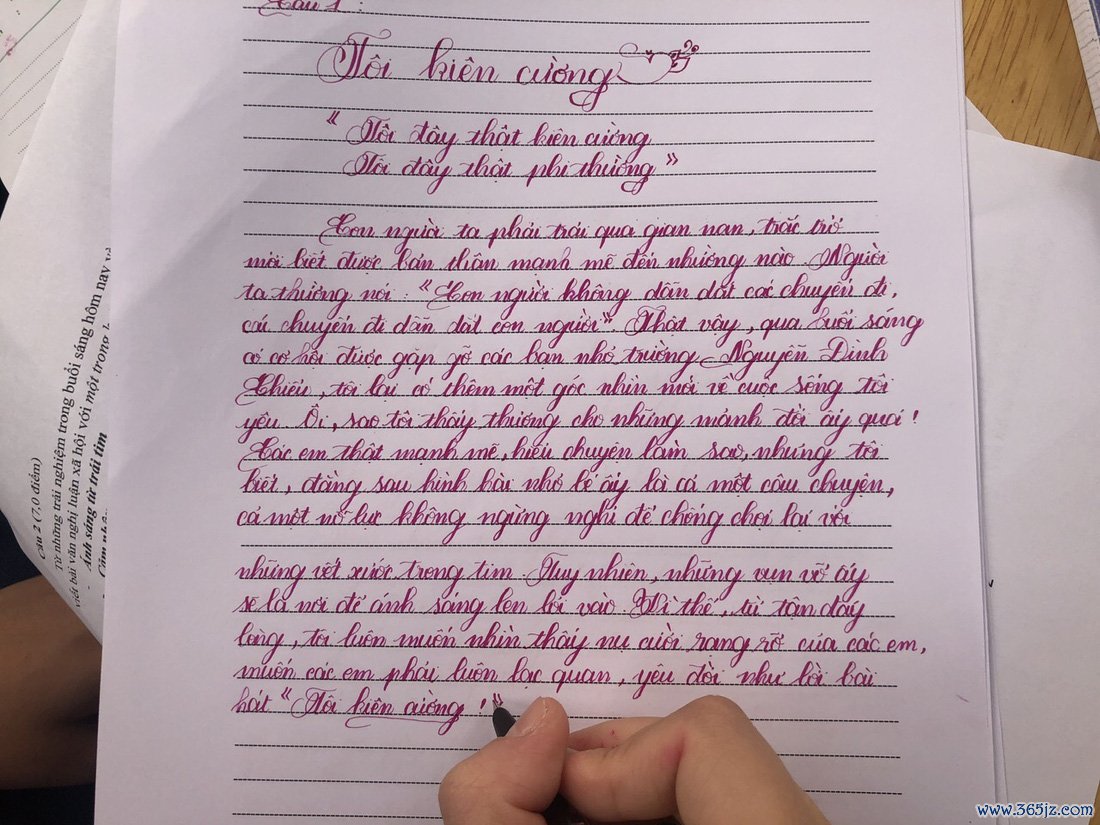 Câu 1 :
Tôi kiên cường
"Tôi đây thật kiên cường
Tôi đây thật phi thường"
Con người ta phải trải qua gian nan, trắc trở
mới biết được bản thân mạnh mẽ đến nhường nào. Người
ta thường nói : "Con người không dẫn dắt các chuyến đi,
các chuyến đi dẫn dắt con người". Thật vậy, qua buổi sáng
có cơ hội được gặp gỡ các bạn nhỏ trường Nguyễn Đình
Chiểu, tôi lại có thêm một góc nhìn mới về cuộc sống tôi
yêu. Ôi, sao tôi thấy thương cho những mảnh đời ấy quá !
Các em thật mạnh mẽ, hiểu chuyện làm sao, nhưng tôi
biết, đằng sau hình hài nhỏ bé ấy là cả một câu chuyện,
cả một nỗ lực không ngừng nghỉ để chống chọi lại với
những vết xước trong tim. Tuy nhiên, những vụn vỡ ấy
sẽ là nơi để ánh sáng len lỏi vào. Vì thế, từ tận đáy
lòng, tôi luôn muốn nhìn thấy nụ cười rạng rỡ của các em,
muốn các em phải luôn lạc quan, yêu đời như lời bài
hát "Tôi kiên cường !"
Câu 2 (7,0 điểm)
Từ những trải nghiệm trong buổi sáng hôm nay
viết bài văn nghị luận xã hội với một trong
- Ánh sáng từ trái tim
www.365jz.com